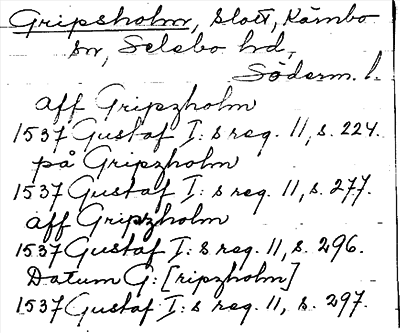 Gripsholm, slott, Kärnbo
sn, Selebo hd,
Söderm. l.
aff Gripzholm
1537 Gustaf I: s reg. 11, s. 224.
på Gripzholm
1537 Gustaf I: s reg. 11, s. 277.
aff Gripzholm
1537 Gustaf I: s reg. 11, s. 296.
Datum G: [ripzholm]
1537 Gustaf I: s reg. 11, s. 297.